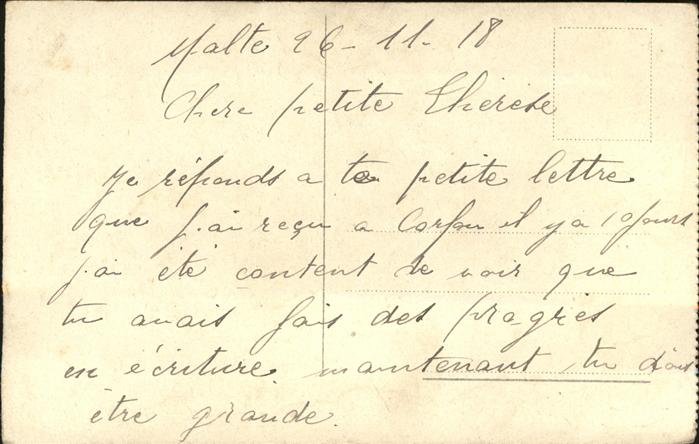 Malte 26-11-18
Chere petite Thérèse
Je réponds a ta petite lettre
que j'ai reçu a Corfou il y a 10 jours
j'ai été content de voir que
tu avais fais des progrès
en écriture maintenant tu dois
être grande.